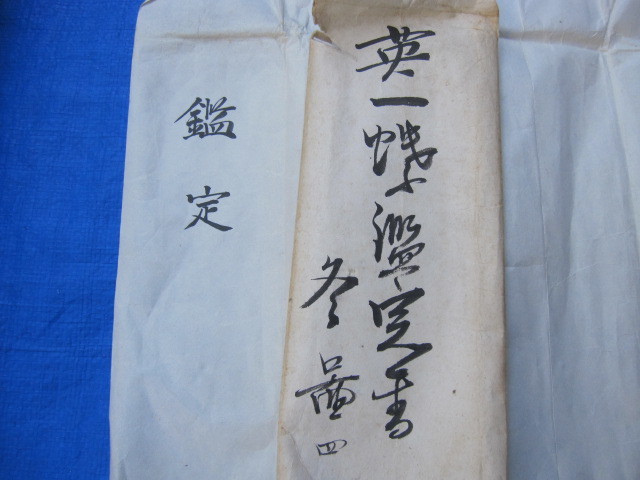 英一蝶鑑定書
冬畫四
鑑定